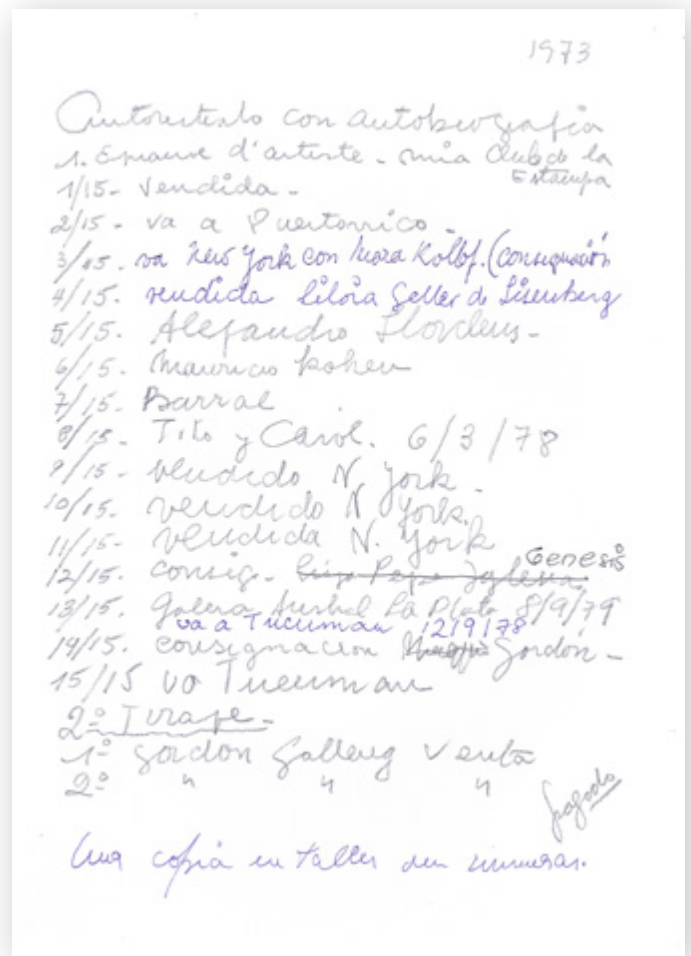 1973
Autorretrato con autobiografia
1. Epreuve d'artiste - mia Club de la
Estampa
1/15- Vendida -
2/15 - va a Puertorrico -
3/15. va New York con Mara Kolbf. (consignación
4/15. vendida Silvia Geller de Lisenberg
5/15. Alejandro
6/15. Mauricio Kohen
7/15. Barral
8/15- Tito y Carol. 6/3/78
9/15- vendido N. York -
10/15. vendido N York.
11/15- vendida N. York
12/15. consig. - Pepe Iglesia Genesis
13/15. Galeria Austral La Plata 8/9/79
va a Tucuman 12/9/78
14/15. consignacion Gordon -
15/15 va Tucuman
2º Tiraje -
1º Gordon Gallery Venta
2º " " "
pagado
Una copia en taller sin numerar.